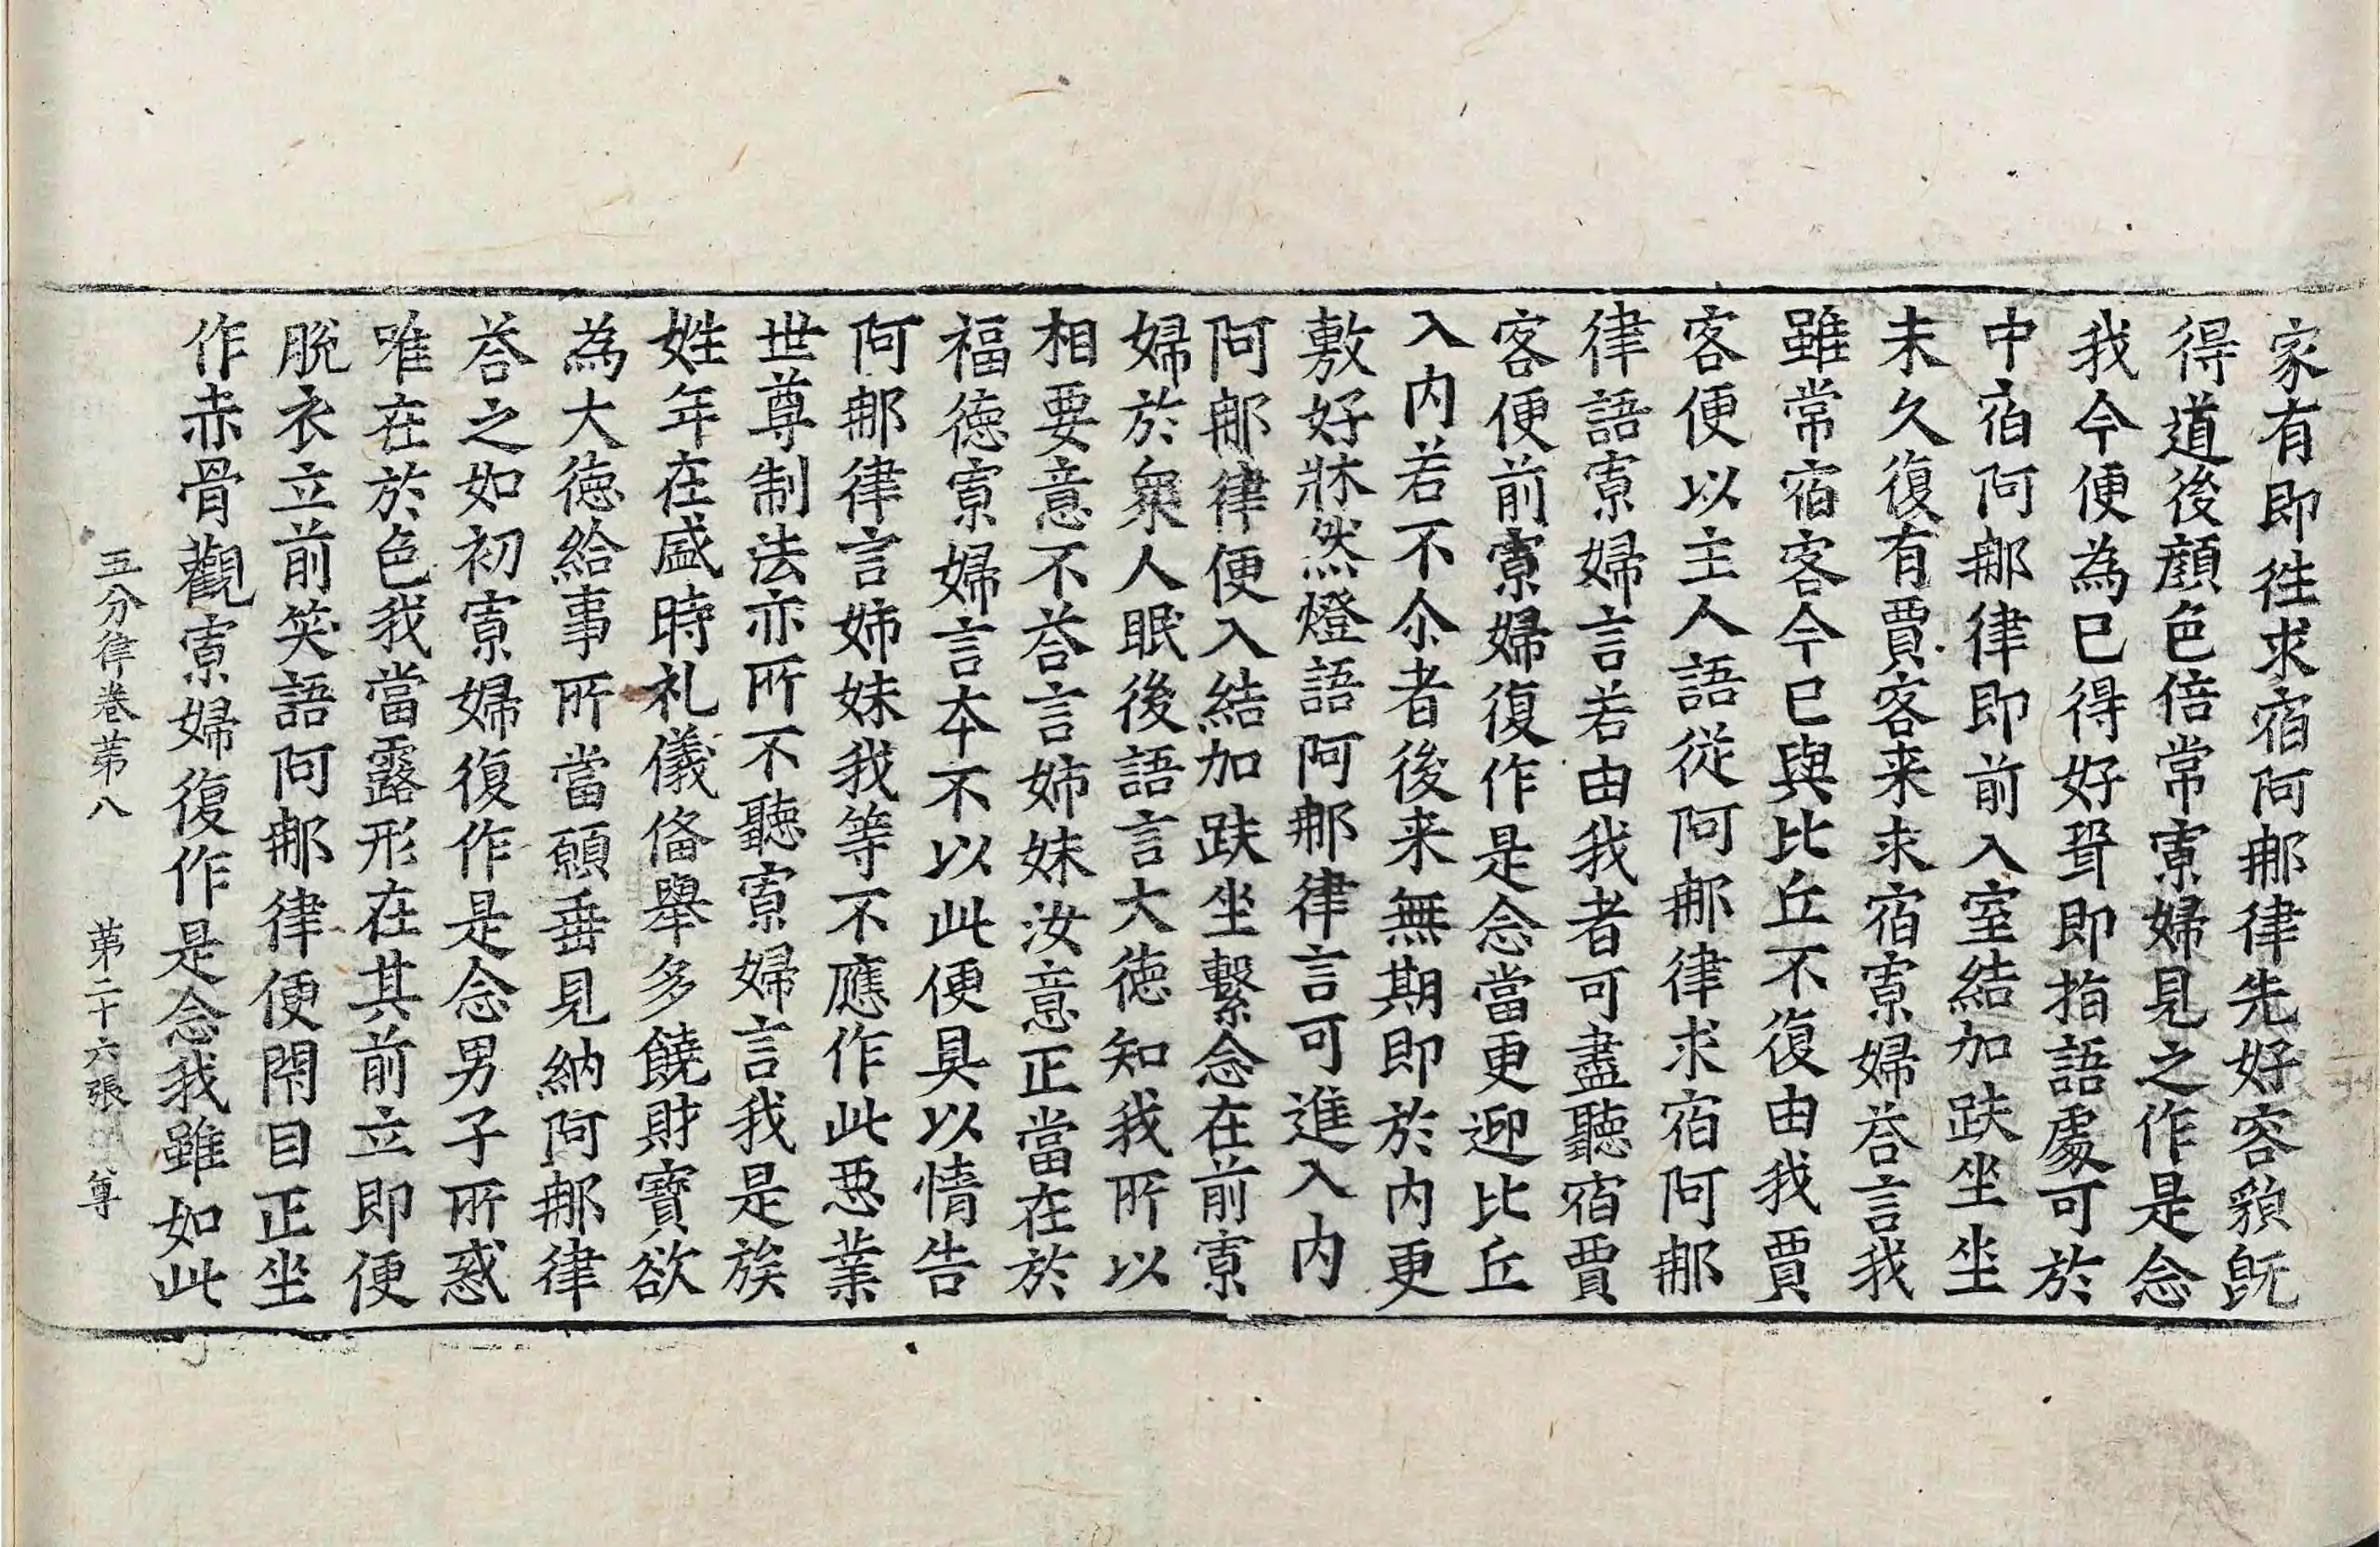 家有即徃求宿阿䣸律先好容䫉旣
得道後顔色倍常寡婦見之作是念
我今便為已得好壻即指語處可於
中宿阿䣸律即前入室結加趺坐坐
未久復有賈客来求宿寡婦荅言我
雖常宿客今已與比丘不復由我賈
客便以主人語從阿䣸律求宿阿䣸
律語寡婦言若由我者可盡聽宿賈
客便前寡婦復作是念當更迎比丘
入内若不尒者後来無期即於内更
敷好牀然燈語阿䣸律言可進入内
阿䣸律便入結加趺坐繫念在前寡
婦於衆人眠後語言大徳知我所以
相要意不荅言姉妹汝意正當在於
福徳寡婦言本不以此便具以情告
阿䣸律言姉妹我等不應作此悪業
世尊制法亦所不聽寡婦言我是族
姓年在盛時礼儀俻舉多饒財寳欲
為大徳給事所當願垂見納阿䣸律
荅之如初寡婦復作是念男子所惑
唯在於色我當露形在其前立即便
脫衣立前笑語阿䣸律便閇目正坐
作赤骨觀寡婦復作是念我雖如此
五分律卷苐八　苐二十六張　尊